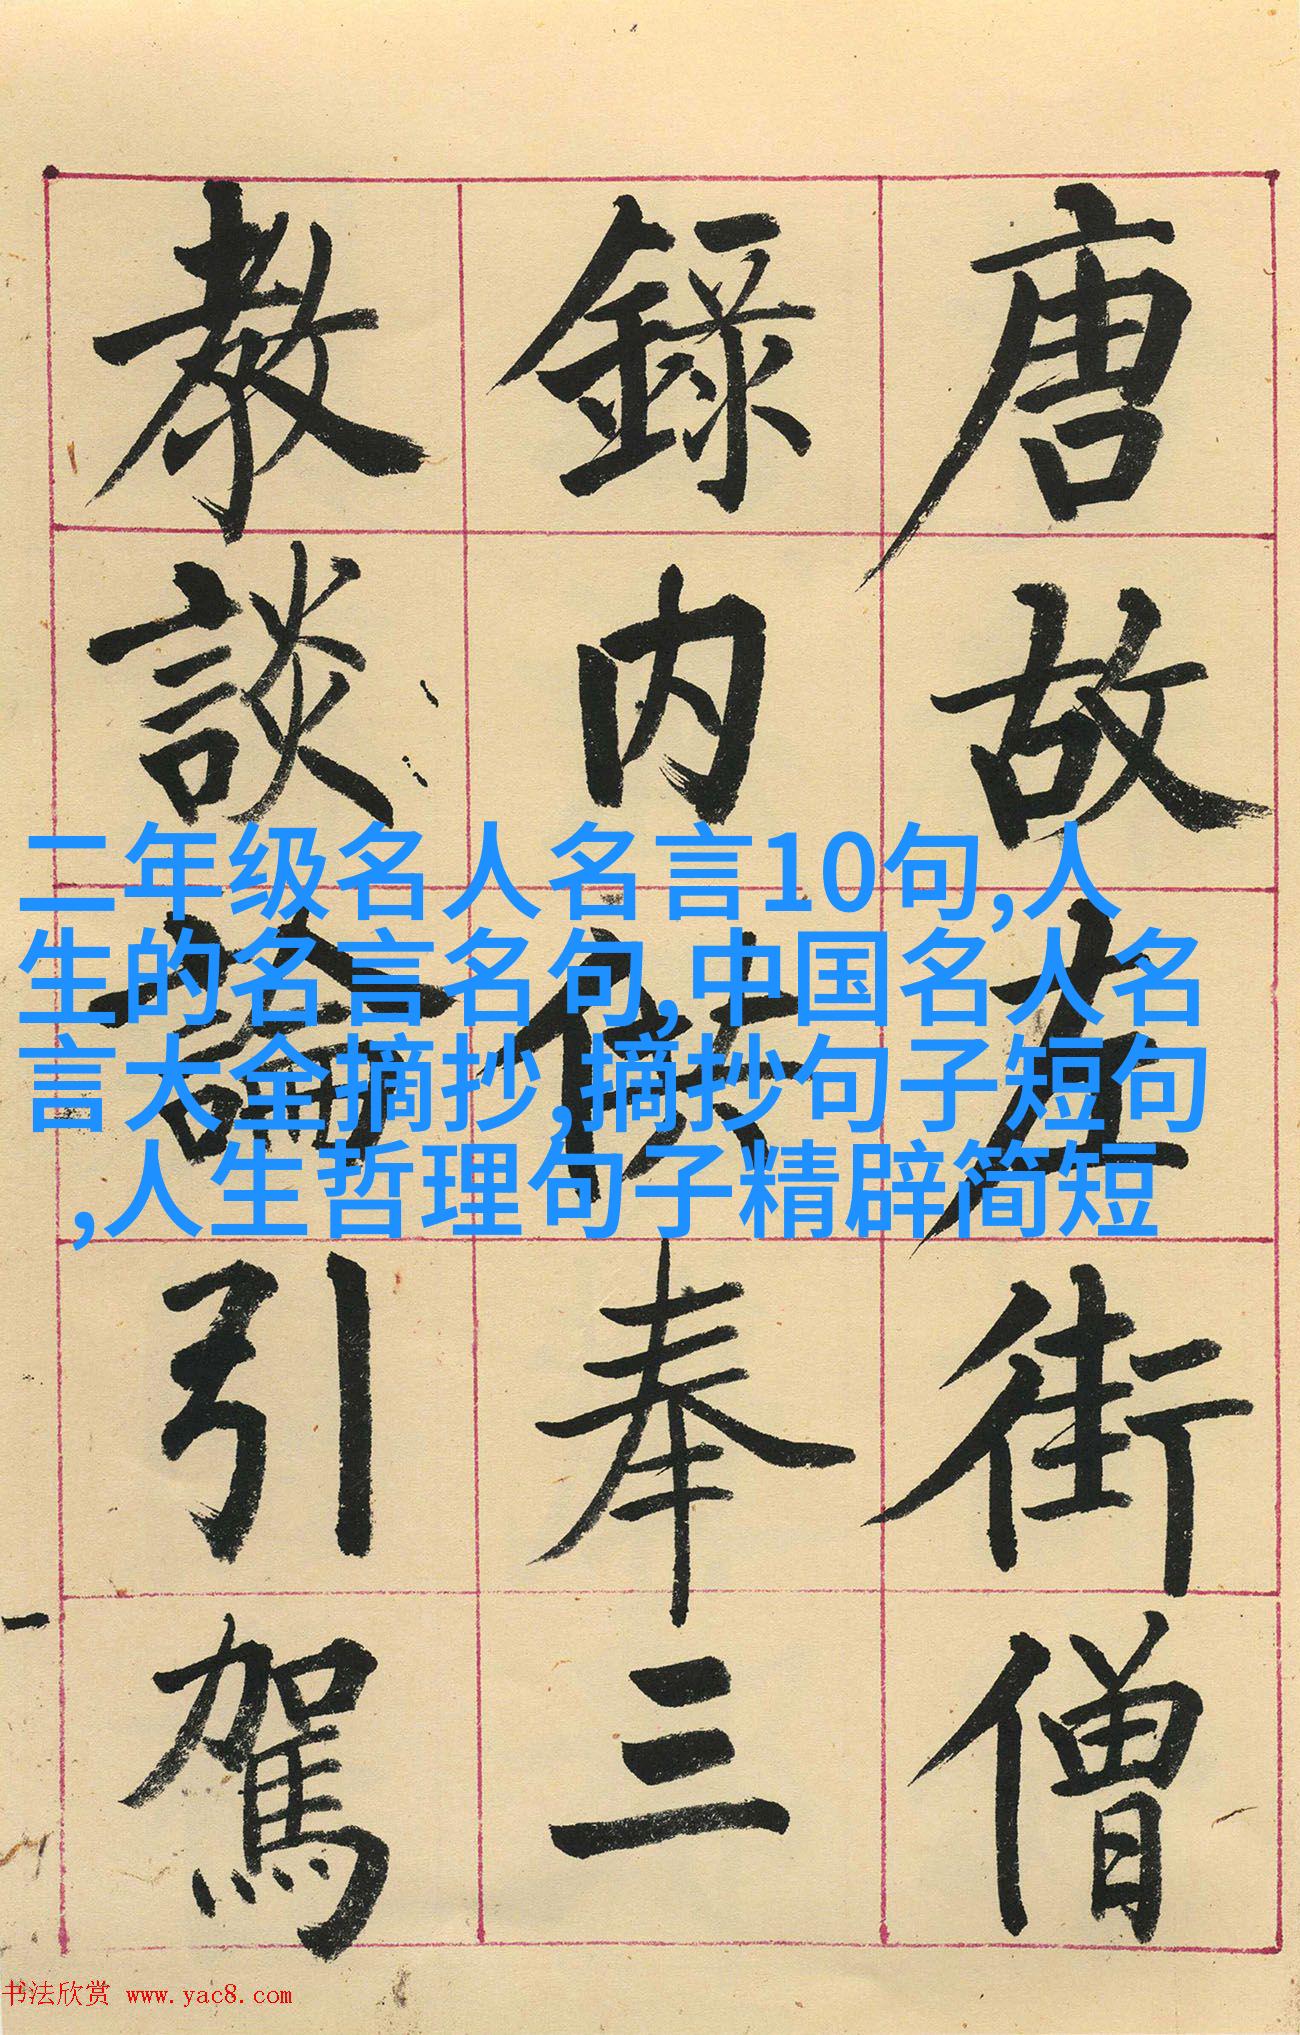 唐故左街僧
録内供奉三
教談論引駕
二年级名人名言10句,人
生的名言名句,中国名人名
言大全摘抄,摘抄句子短句
,人生哲理句子精辟简短
书法欣赏 www.yac8.com